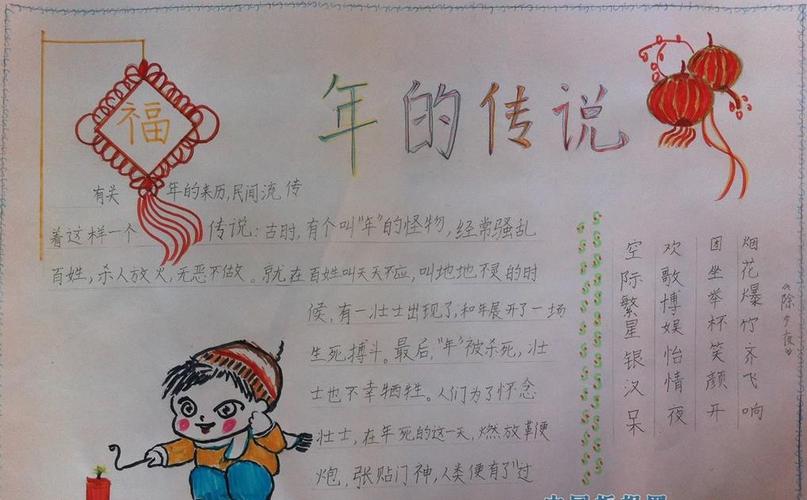 福
年的传说
有关 年的来历,民间流传
着这样一个 传说:古时,有个叫"年"的怪物,经常骚乱
百姓,杀人放火,无恶不做。就在百姓叫天天不应,叫地地不灵的时
候,有一壮士出现了,和年展开了一场
生死搏斗。最后,"年"被杀死,壮
士也不幸牺牲。人们为了怀念
壮士,在年死的这一天,燃放鞭
炮,张贴门神,人类便有了"过
《除夕夜》
烟花爆竹齐飞响
团坐举杯笑颜开
欢歌博娱怡情夜
空际繁星银汉呆